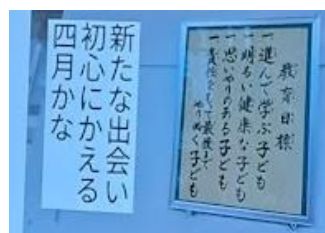 教育目標
一進んで学ぶ子ども
一明るい健康な子ども
一思いやりのある子ども
一責任をもって最後まで
やりぬく子ども
新たな出会い
初心にかえる
四月かな